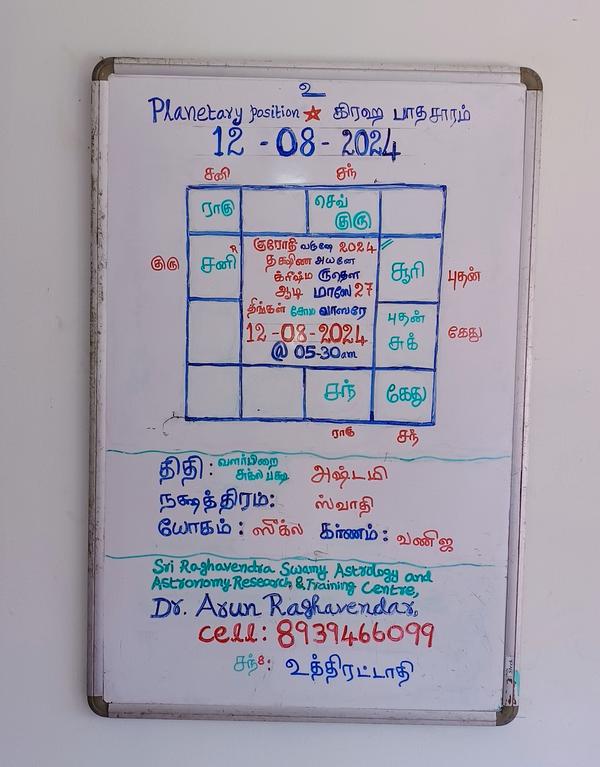 உ
Planetary position ☆ கிரஹ பாதசாரம்
12 - 08 - 2024
சனி சந்
ராகு செவ் குரு
குரு சனி R சூரி புதன்
புதன் சுக் கேது
சந் கேது
ராகு சந்
குரோதி வருஷே 2024
தக்ஷிண அயனே
க்ரிஷ்ம ருதௌ
ஆடி மாஸே 27
திங்கள் சோம வாஸரே
12-08-2024
@ 05-30am
திதி : வளர்பிறை சுக்ல பக்ஷ அஷ்டமி
நக்ஷத்திரம்: ஸ்வாதி
யோகம் : ஸுக்ல கரணம் : வணிஜ
Sri Raghavendra Swamy Astrology and
Astronomy Research & Training Centre,
Dr. Arun Raghavendar,
cell: 8939466099
சந்8: உத்திரட்டாதி